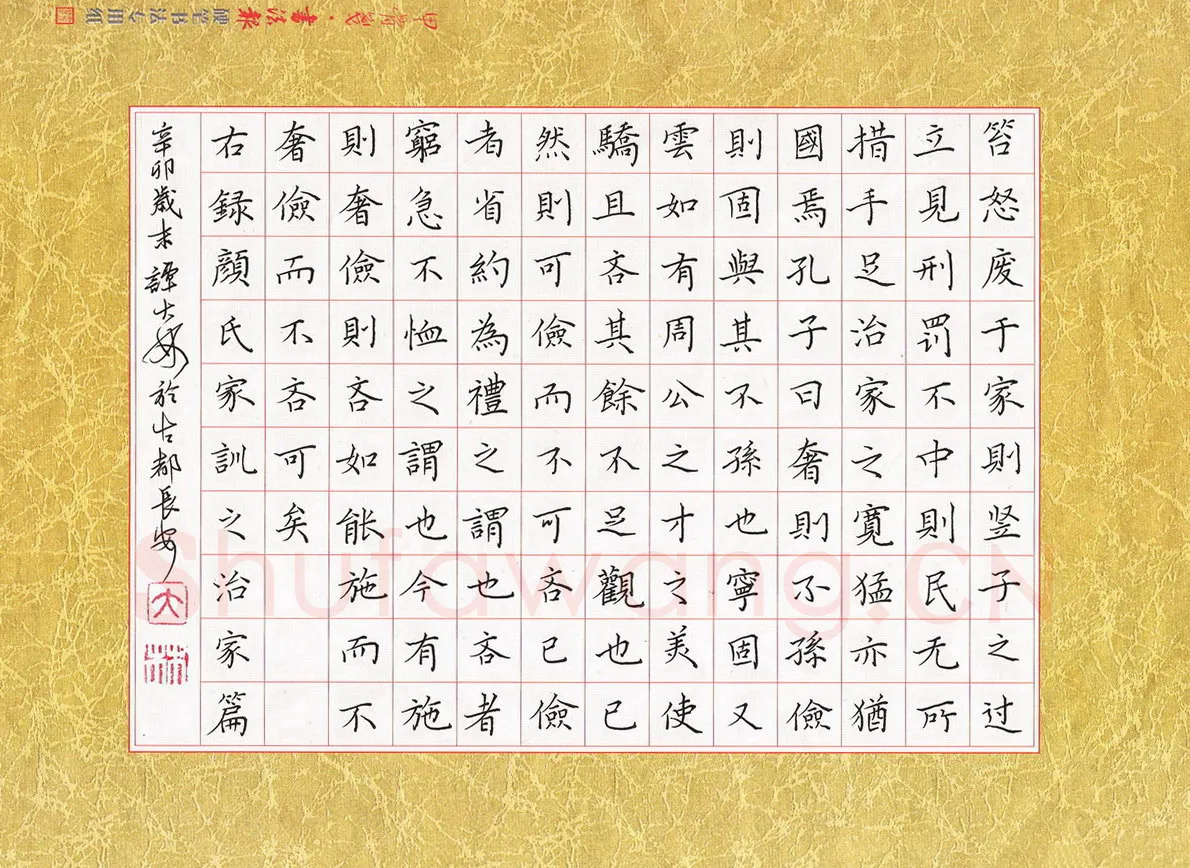 笞怒废于家則竖子之过
立見刑罚不中則民无所
措手足治家之寬猛亦猶
國焉孔子曰奢則不孫儉
則固與其不孫也寧固又
雲如有周公之才之美使
驕且吝其餘不足觀也已
然則可儉而不可吝已儉
者省約為禮之謂也吝者
窮急不恤之謂也今有施
則奢儉則吝如能施而不
奢儉而不吝可矣
右録顔氏家訓之治家篇
辛卯歲末譚大於古都長安
大
書法報
硬笔书法专用纸
Shufawang.CN